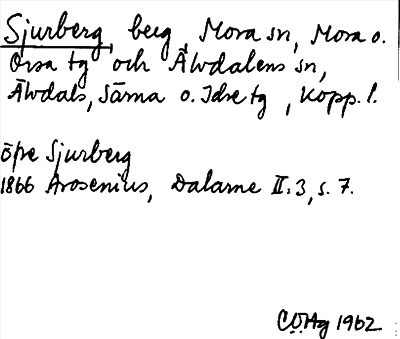 Sjurberg, berg, Mora sn, Mora o.
Orsa tg och Älvdalens sn,
Älvdals, Särna o. Idre tg, Kopp. l.
öfre Sjurberg
1866 Arosenius, Dalarne II:3, s. 7.
COHg 1962